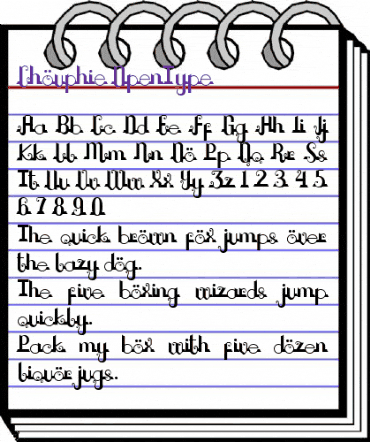 Chouphie OpenType
Aa Bb Cc Dd Ee Ff Gg Hh Ii Jj
Kk Ll Mm Nn Oo Pp Qq Rr Ss
Tt Uu Vv Ww Xx Yy Zz 1 2 3 4 5
6 7 8 9 0
The quick brown fox jumps over
the lazy dog.
The five boxing wizards jump
quickly.
Pack my box with five dozen
liquor jugs.